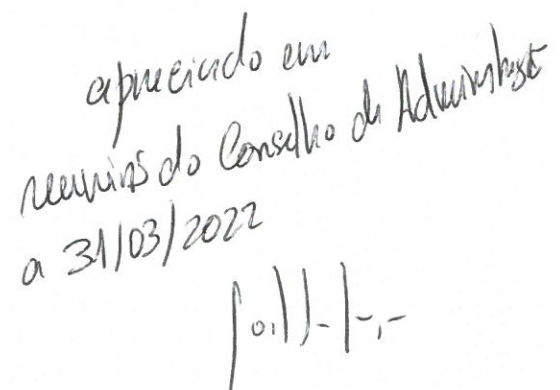 apreciado em
reunião do Conselho de Administração
a 31/03/2022